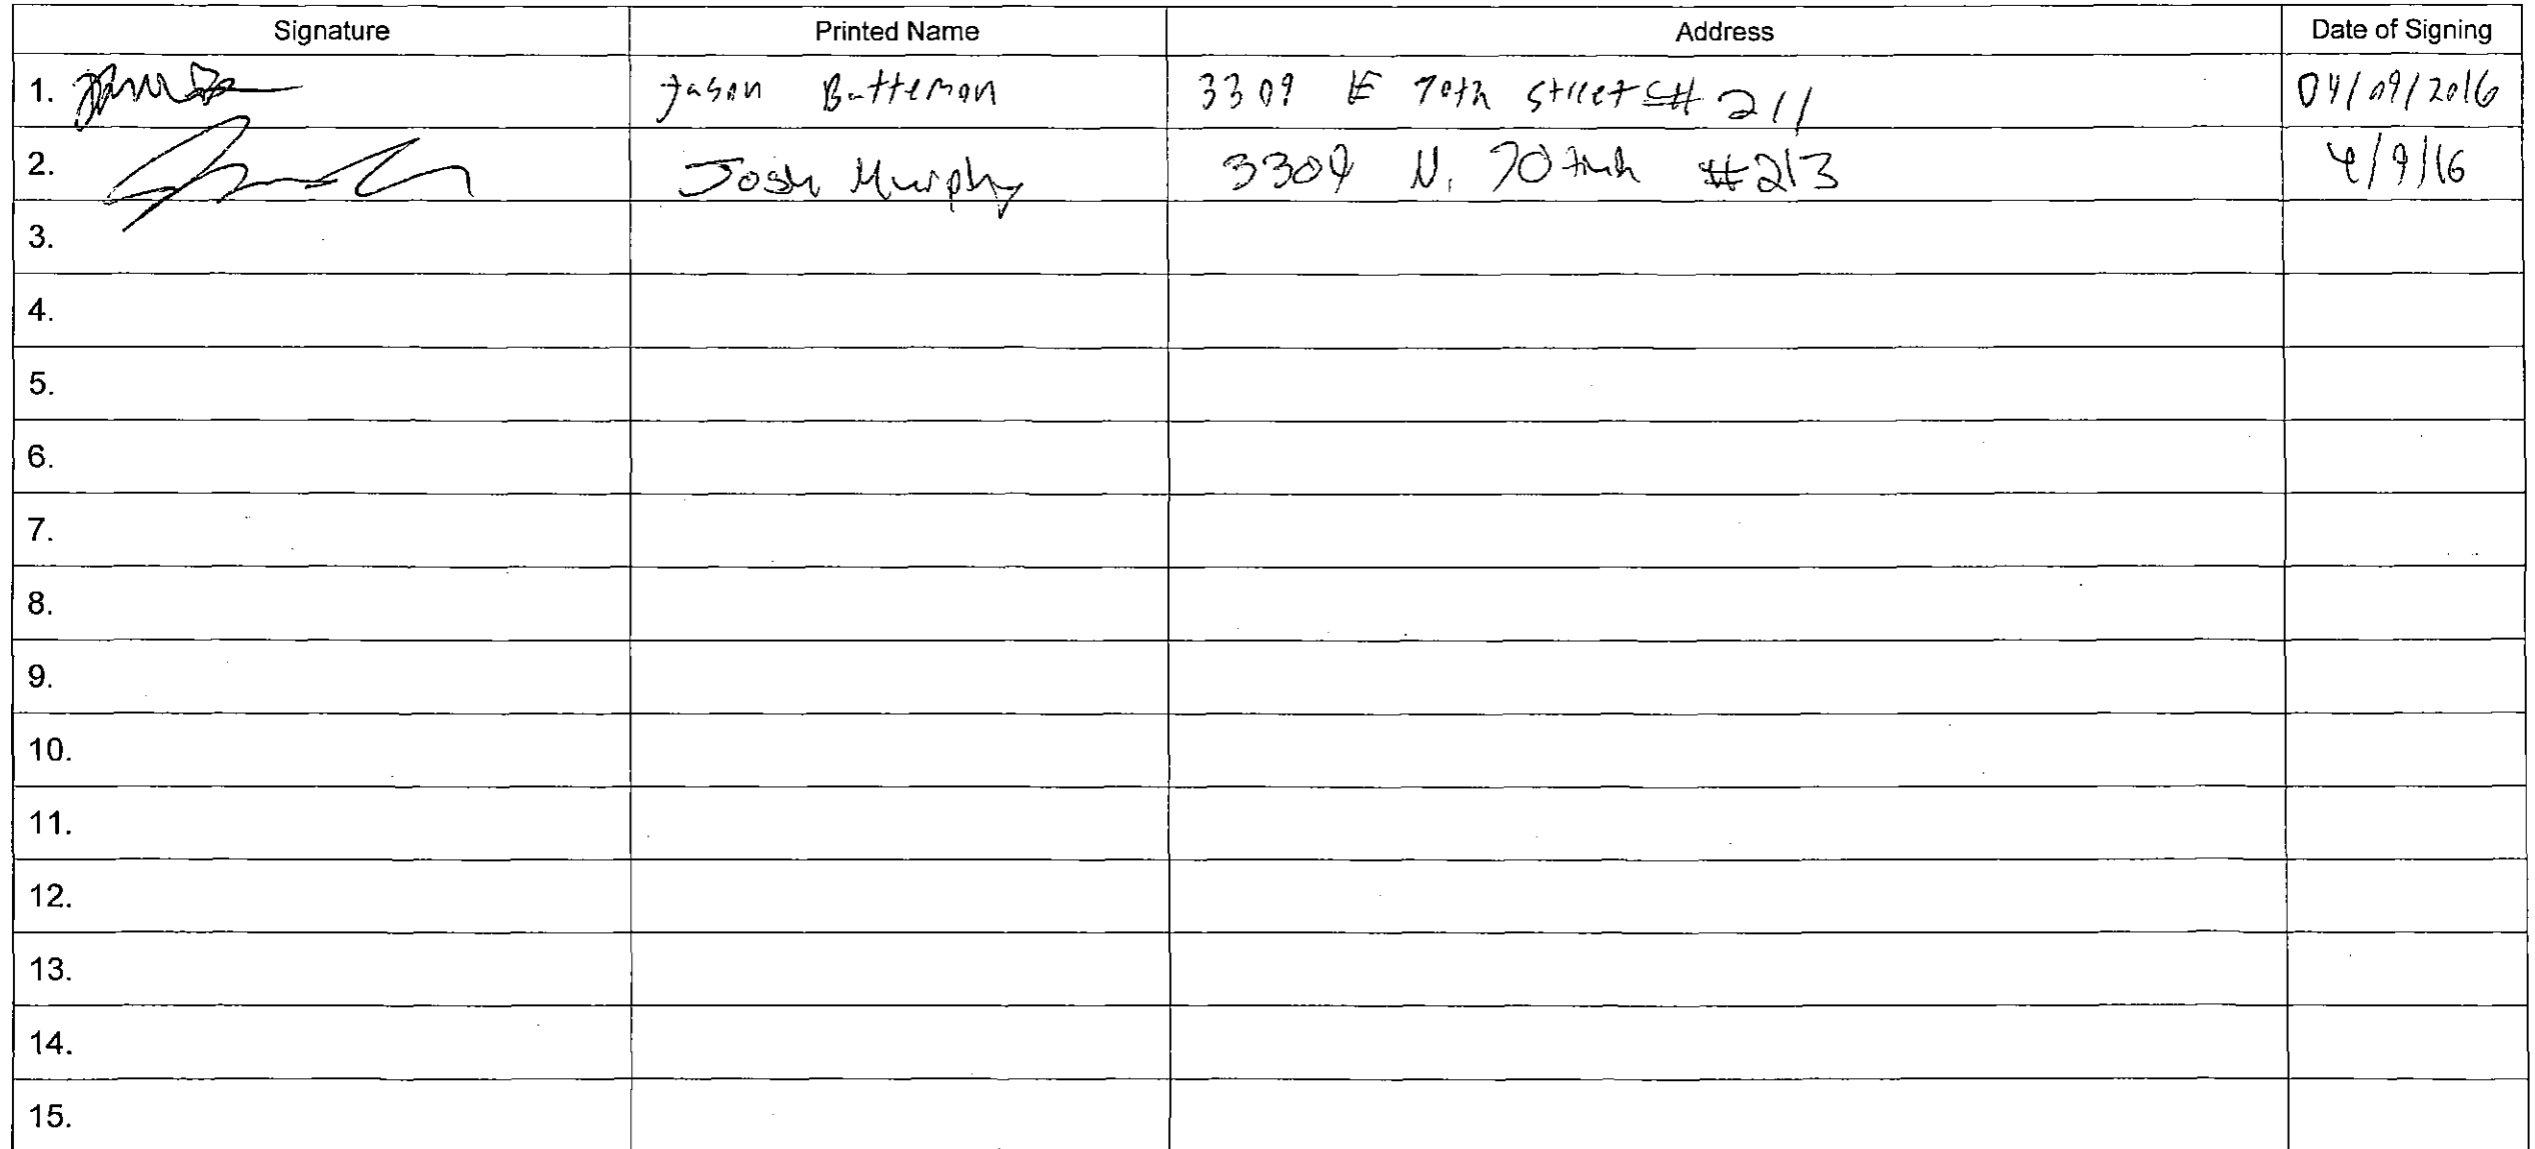 Signature Printed Name Address Date of Signing
1. Jason Batteman 3309 E 70th street #211 04/09/2016
2. Josh Murphy 3309 N. 70th #213 4/9/16
3.
4.
5.
6.
7.
8.
9.
10.
11.
12.
13.
14.
15.